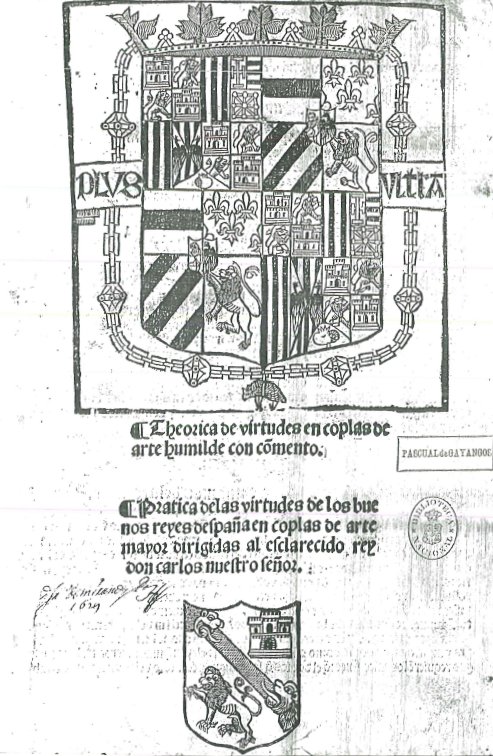 PLVS
VLTRA
¶Theorica de virtudes en coplas de
arte humilde con cõmento.
PASCUAL de GAYANGOS
¶Pratica delas virtudes de los bue
nos reyes despaña en coplas de arte
mayor dirigidas al esclarecido rey
don carlos nuestro señor.
BIBLIOTECA
NACIONAL